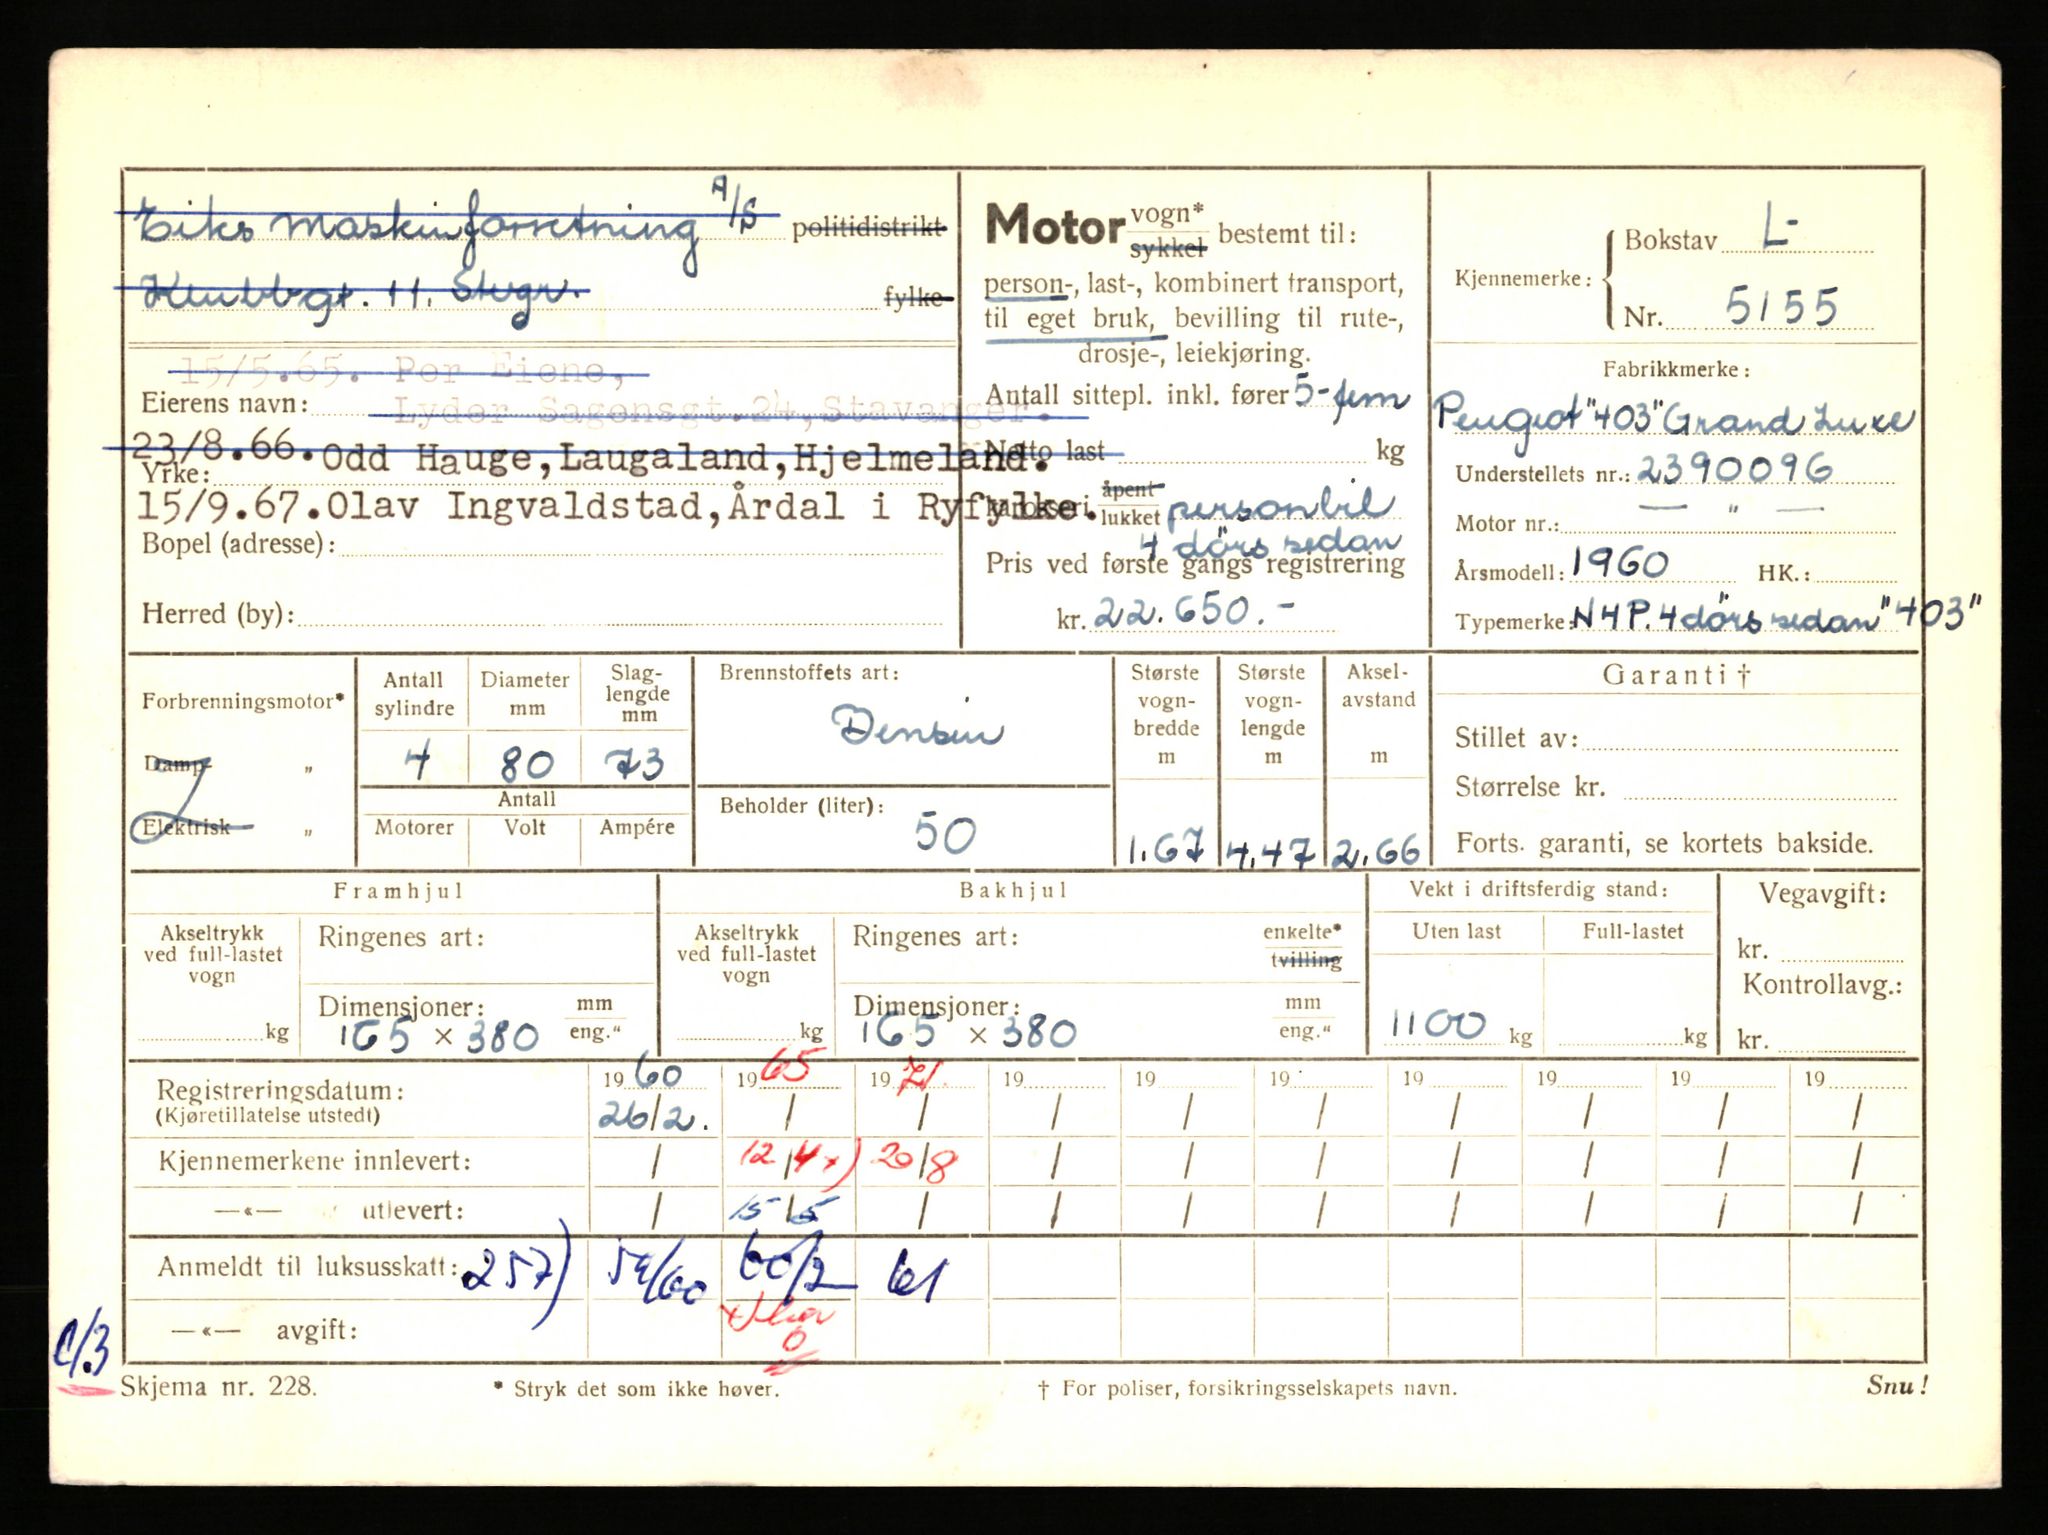 Eiks Maskinforretning A/S politidistrikt
Klubbgt. 11. Svgr. fylke
15/5.65. Per Eiene,
Eierens navn: Lyder Sagensgt.24,Stavanger.
23/8.66. Odd Hauge,Laugaland,Hjelmeland.
Yrke:
15/9.67.Olav Ingvaldstad,Årdal i Ryfylke.
Bopel (adresse):
Herred (by):
Motor vogn* sykkel bestemt til:
person-, last-, kombinert transport,
til eget bruk, bevilling til rute-,
drosje-, leiekjøring.
Antall sittepl. inkl. fører 5-fem
Netto last kg
Karosseri åpent lukket personbil
4 dørs sedan
Pris ved første gangs registrering
kr. 22.650.-
Kjennemerke: Bokstav L-
Nr. 5155
Fabrikkmerke:
Peugeot "403" Grand Luxe
Understellets nr.: 2390096
Motor nr.: — " —
Årsmodell: 1960 HK.:
Typemerke: N4P. 4dörs sedan "403"
Forbrenningsmotor*
Damp- „
Elektrisk „
Antall sylindre
4
Diameter mm
80
Slag- lengde mm
73
Antall
Motorer Volt Ampére
Brennstoffets art:
Bensin
Beholder (liter):
50
Største vogn- bredde m
1.67
Største vogn- lengde m
4.47
Aksel- avstand m
2.66
Garanti †
Stillet av:
Størrelse kr.
Forts. garanti, se kortets bakside.
Framhjul
Akseltrykk ved full-lastet vogn
kg
Ringenes art:
Dimensjoner: mm eng.“
165 × 380
Bakhjul
Akseltrykk ved full-lastet vogn
kg
Ringenes art: enkelte* tvilling
Dimensjoner: mm eng.“
165 × 380
Vekt i driftsferdig stand:
Uten last Full-lastet
1100 kg kg
Vegavgift:
kr.
Kontrollavg.:
kr.
Registreringsdatum: 1960 1965 1971. 19 19 19 19 19 19 19
(Kjøretillatelse utstedt) 26/2. / / / / / / / / /
Kjennemerkene innlevert: / 12/4 x) 20/8 / / / / / / /
—«— utlevert: / 15/5 / / / / / / / /
Anmeldt til luksusskatt: 257) 59/60 60/2 61
—«— avgift: x) 0
1/3
Skjema nr. 228. * Stryk det som ikke høver. † For poliser, forsikringsselskapets navn. Snu!